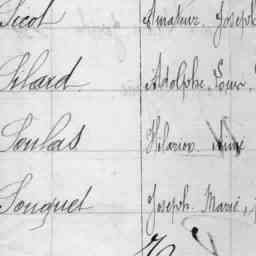 Sicot Amateur Joseph
Silard Adolphe Louis
Soulas Hilarion
Souquet Joseph Marie,